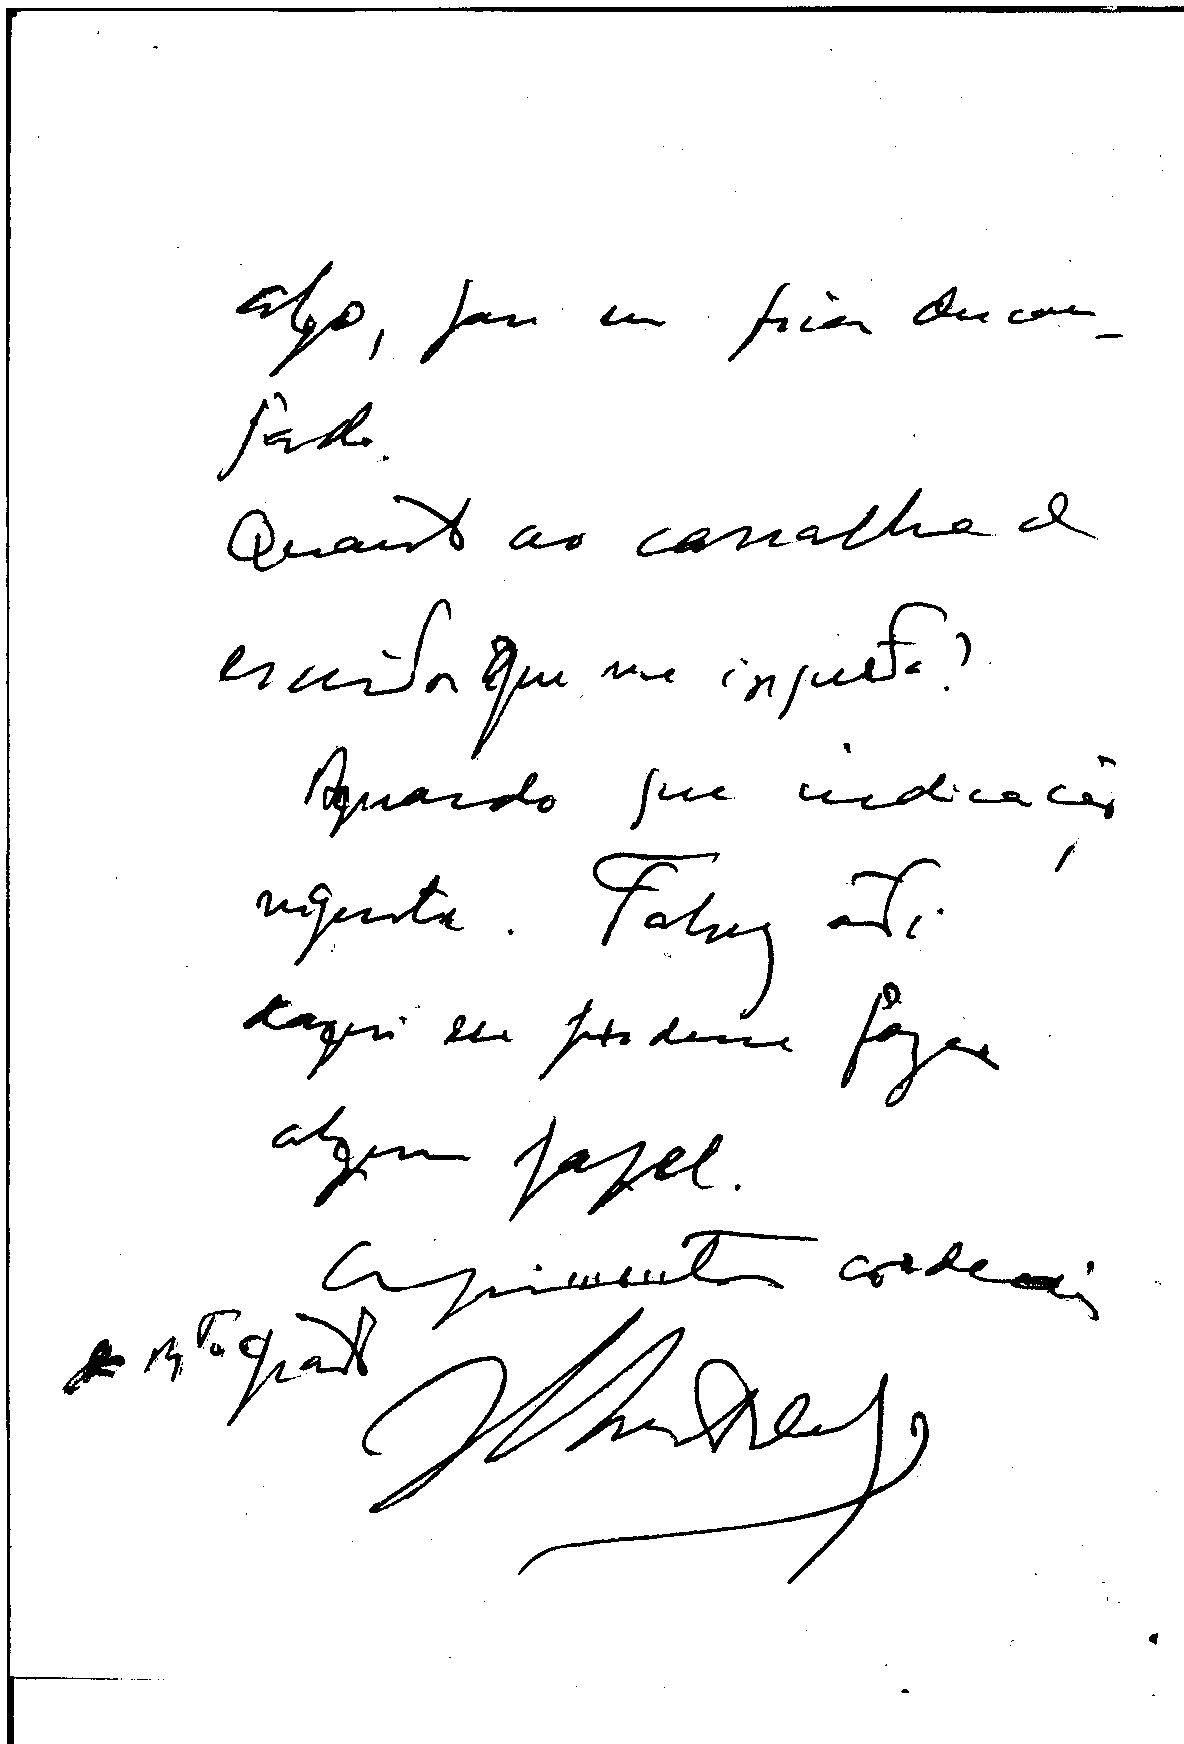 algo, para um ficar descan-
sado.
Quanto ao canalha do
escritor que me insulta?
Aguardo sua indicação
urgente. Talvez até
daqui se pudesse fazer
algum papel.
Cumprimentos cordeais
e mto grato